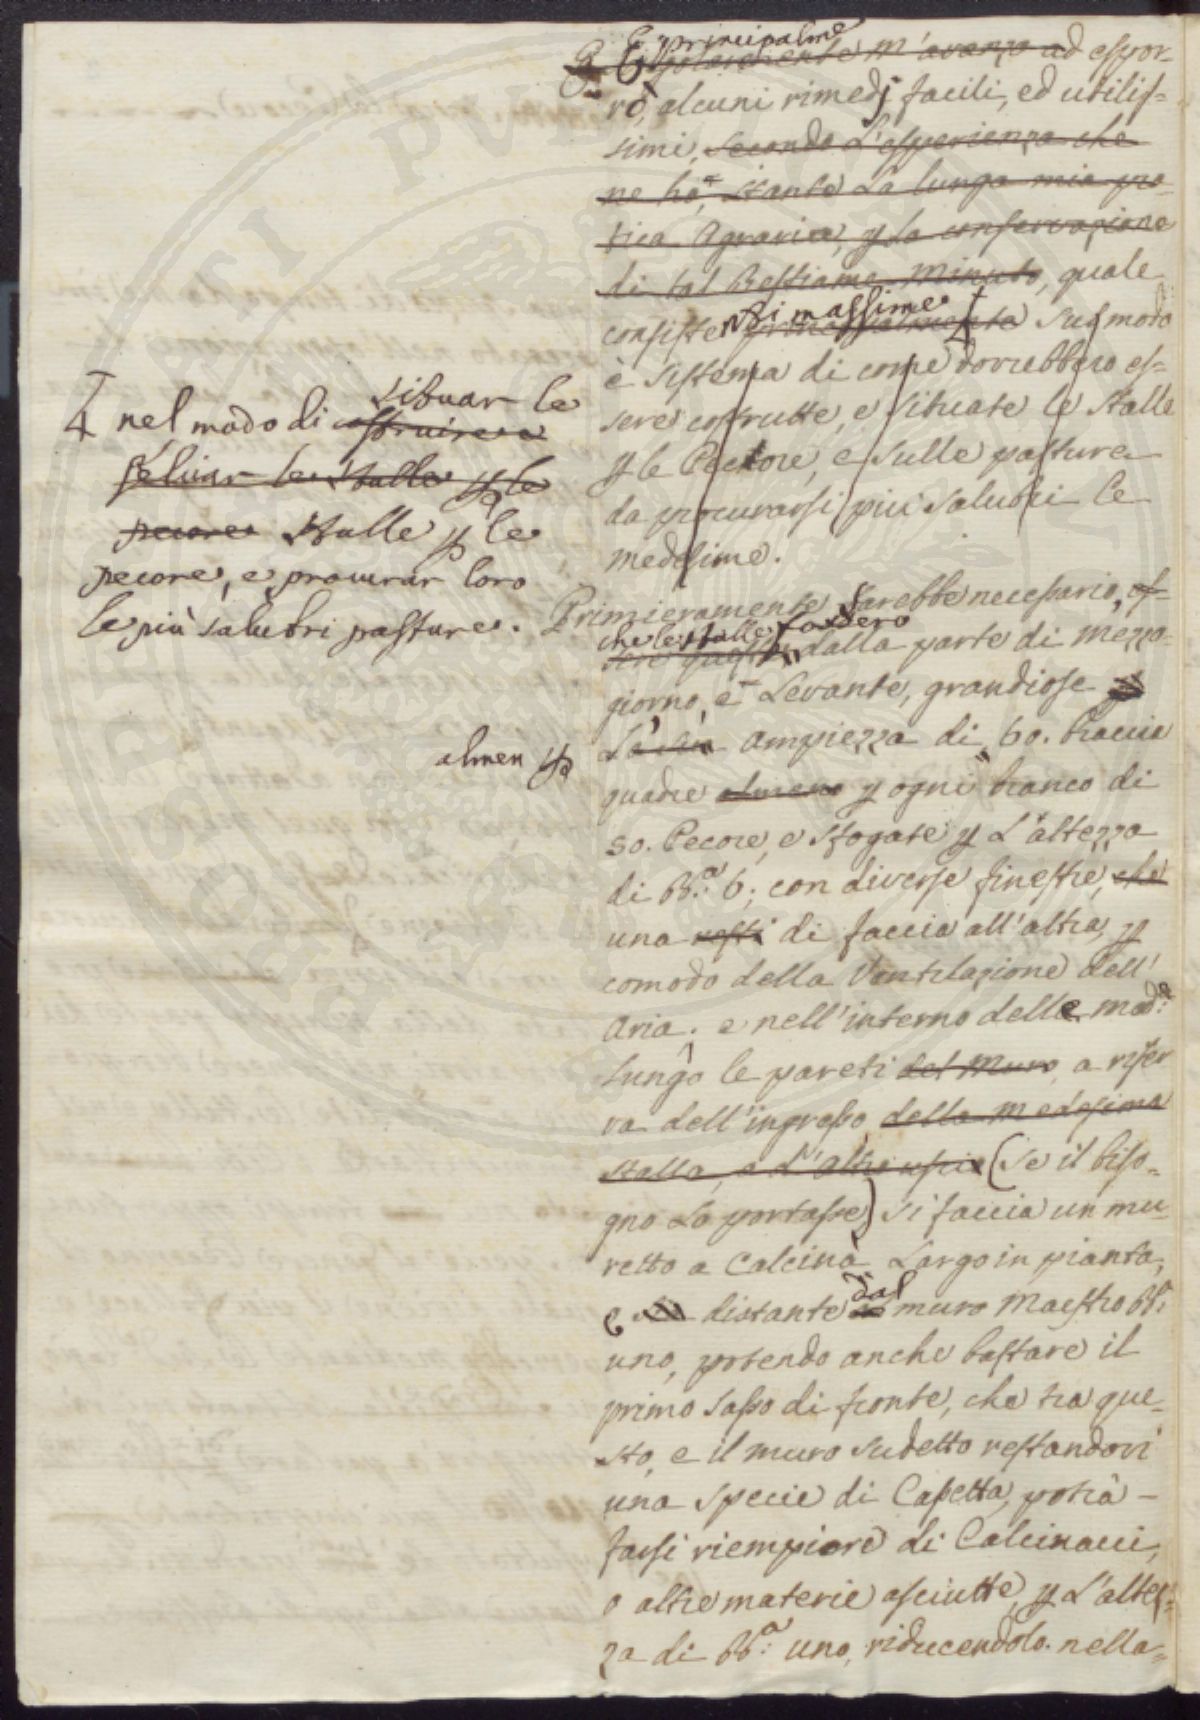 principalme
E solamente m'avanzo ad espor-
rò, alcuni rimedj facili, ed utilis-
simi, secondo L'esperienza che
ne hò, stante La lunga mia pra-
tica Agraria, p La conservazione
di tal Bestiame Minuto, quale
consiste principalmente sul modo
massime
è sistema di come dovrebbero es-
sere costrutte, e situate le stalle
p le Pecore, e sulle pasture
da procurarsi più salubri le
medesime.
nel modo di costruire e
situar le
situar le stalle p le
pecore stalle p le
pecore, e procurar loro
le più salubri pasture.
Primieramente sarebbe necessario, es-
che le stalle fossero
sere queste dalla parte di mezzo-
giorno, e Levante, grandiose
almen p
La ampiezza di 60. braccia
quadre almeno p ogni branco di
50. Pecore, e sfogate p L'altezza
di bb.a 6; con diverse finestre, che
una resti di faccia all'altra, p
comodo della Ventilazione dell'
Aria; e nell'interno delle med.e
lungo le pareti del Muro, a riser
va dell'ingresso della medesima
stalla, o d'altro uscio (se il biso-
gno Lo portasse) si faccia un mu-
retto a Calcina Largo in pianta,
e distante dal muro Maestro bb.
uno, potendo anche bastare il
primo sasso di fronte, che tra que-
sto, e il muro sudetto restandovi
una specie di Casetta, potrà -
farsi riempiere di Calcinacci,
o altre materie asciutte, p L'altez-
za di bb.a uno, riducendolo nella-